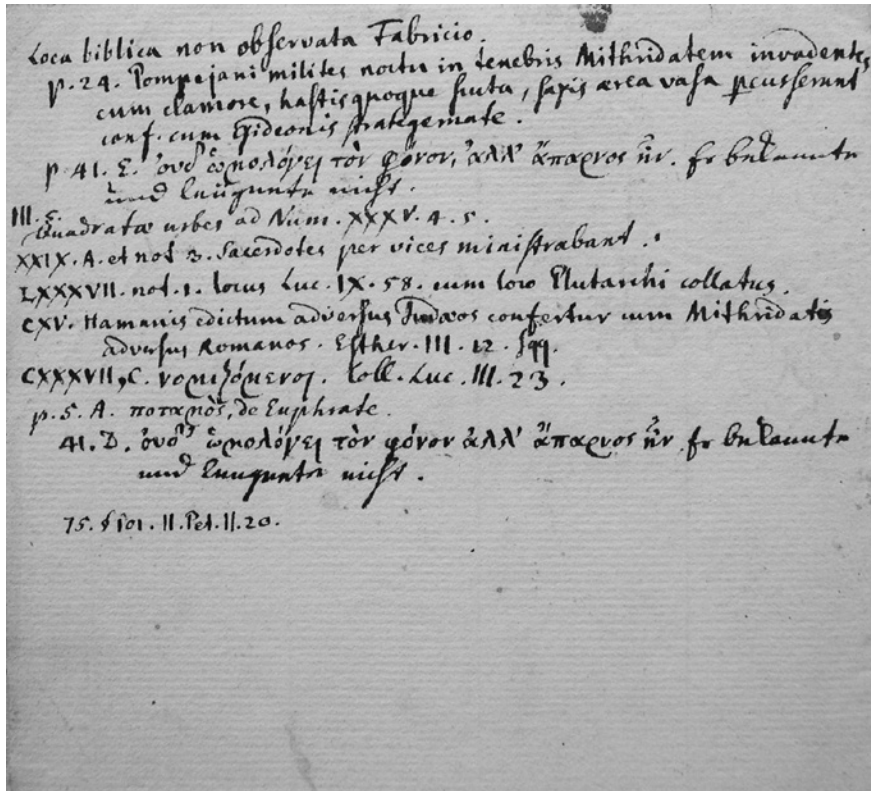 Loca biblica non observata Fabricio.
p. 24. Pompejani milites noctu in tenebris Mithridatem invadentes,
cum clamore, hastis quoque scuta, saxis aerea vasa pcusserunt
conf. cum Gideonis strategemate.
p. 41. E. ὀυδ' ὡμολόγει τὸν φόνον, ἀλλ' ἄπαρνος ἦν. Er bekannte
und leügnete nicht.
III. 5.
Quadratae urbes ad Num. XXXV. 4. 5.
XXIX. A. et not 3. Sacerdotes per vices ministrabant.
LXXXVII. not. 1. locus Luc. IX. 58. cum loco Plutarchi collatus.
CXV. Hamanis edictum adversus Judaeos confertur cum Mithridatis
adversus Romanos. Esther. III. 12. sqq.
CXXXVII, C. νομιζόμενος. Coll. Luc. III. 23.
p. 5. A. ποταμὸς, de Euphrate.
41. D. ὀυδ' ὡμολόγει τὸν φόνον ἀλλ' ἄπαρνος ἦν. Er bekannte
und leugnete nicht.
75. II. Pet. II. 20.